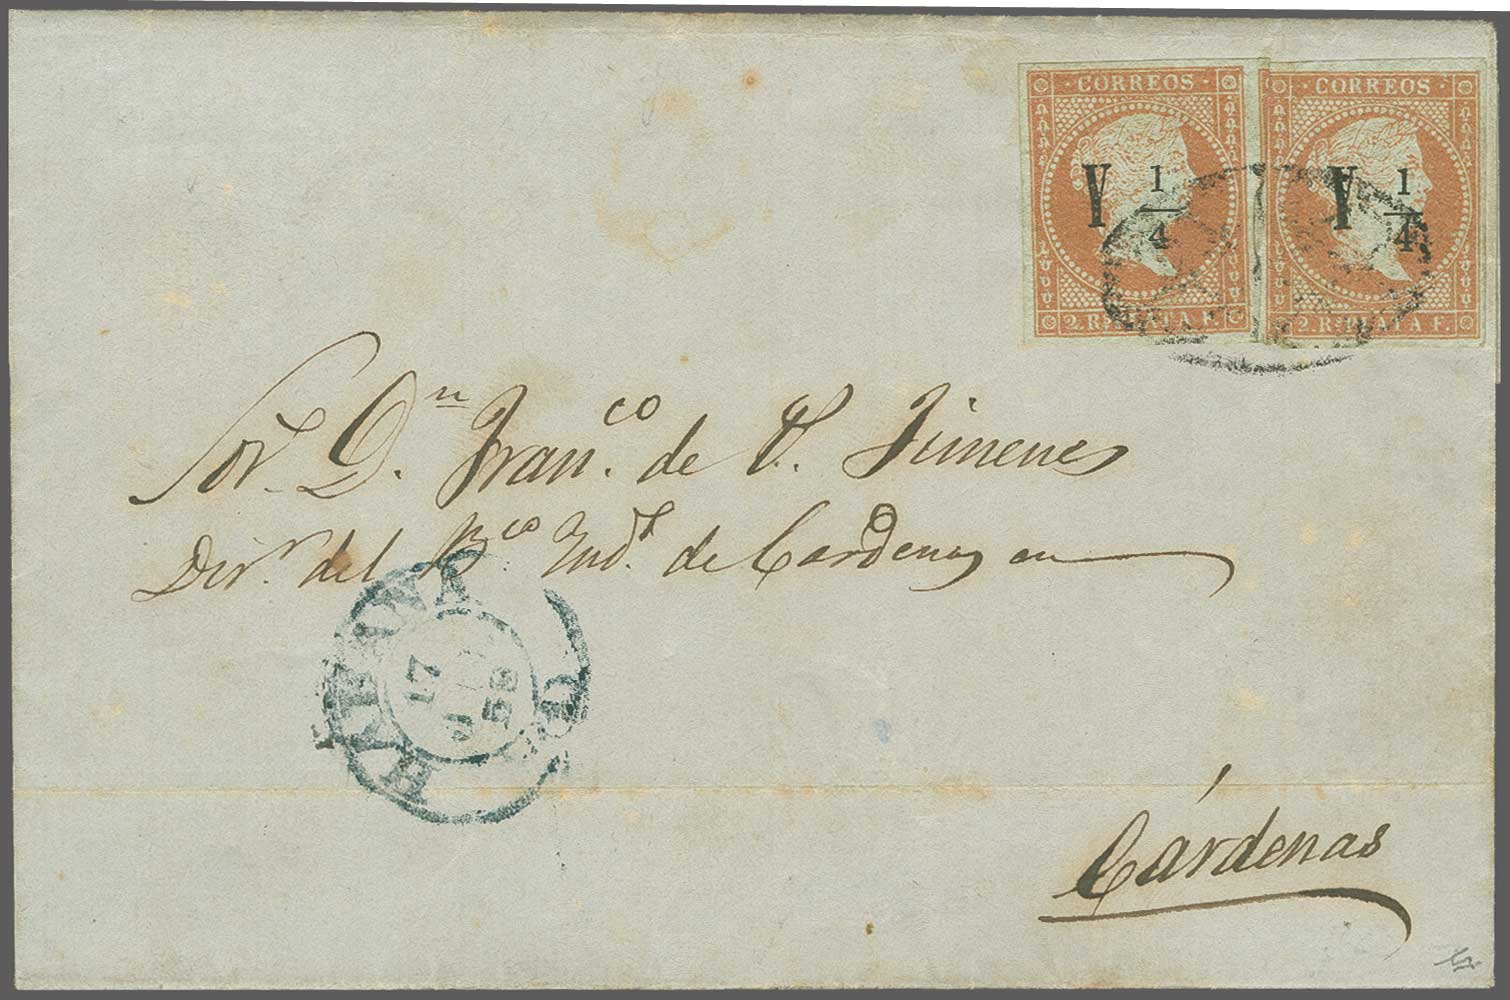 CORREOS CORREOS
Y 1/4 Y 1/4
2. R. PLATA F. 2. R. PLATA F.
Sor. Dn. Franco. de P. Jimenes
Dir. del Bco. Indl. de Cardenas en
HABANA
17
58
Cárdenas